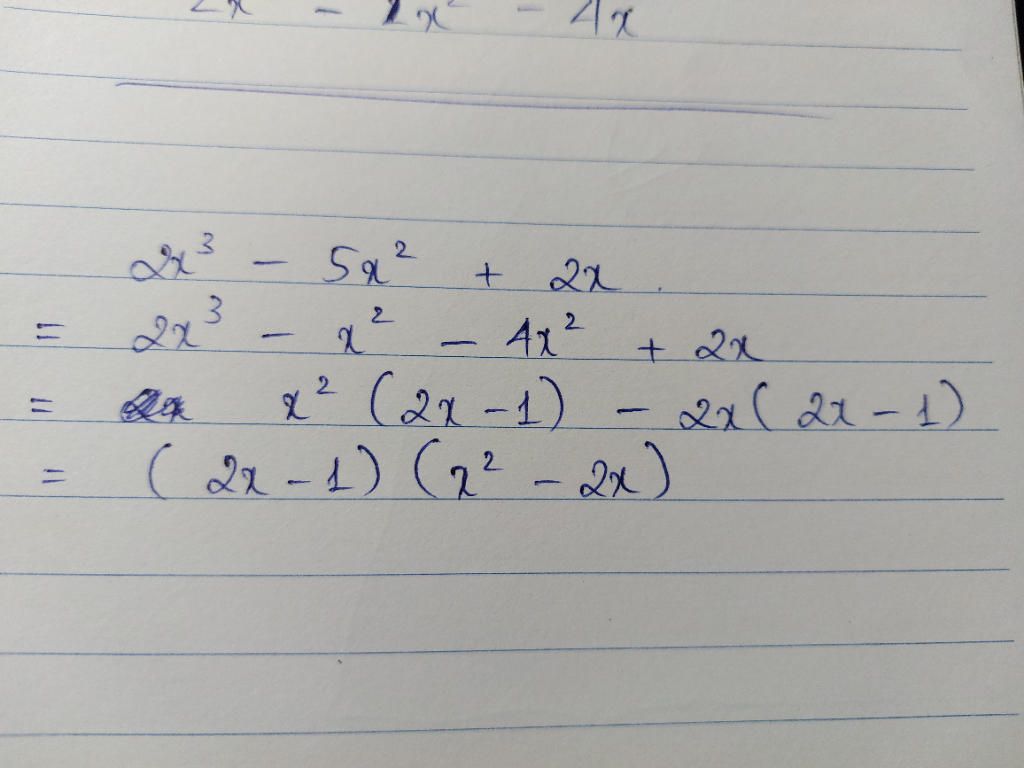 2x³ - 5x² + 2x.
= 2x³ - x² - 4x² + 2x
= x² (2x - 1) - 2x( 2x - 1)
= ( 2x - 1) (x² - 2x)